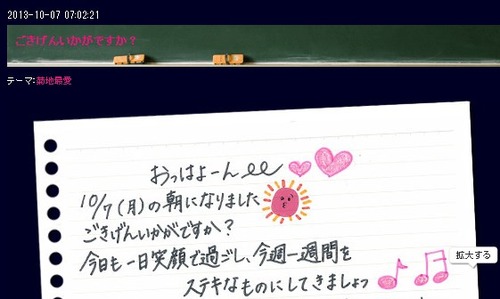 2013-10-07 07:02:21
ごきげんいかがですか？
テーマ:築地最愛
おっはよーん
10/7(月)の朝になりました
ごきげんいかがですか？
今日も一日笑顔で過ごし、今週一週間を
ステキなものにしてきましょっ
拡大する